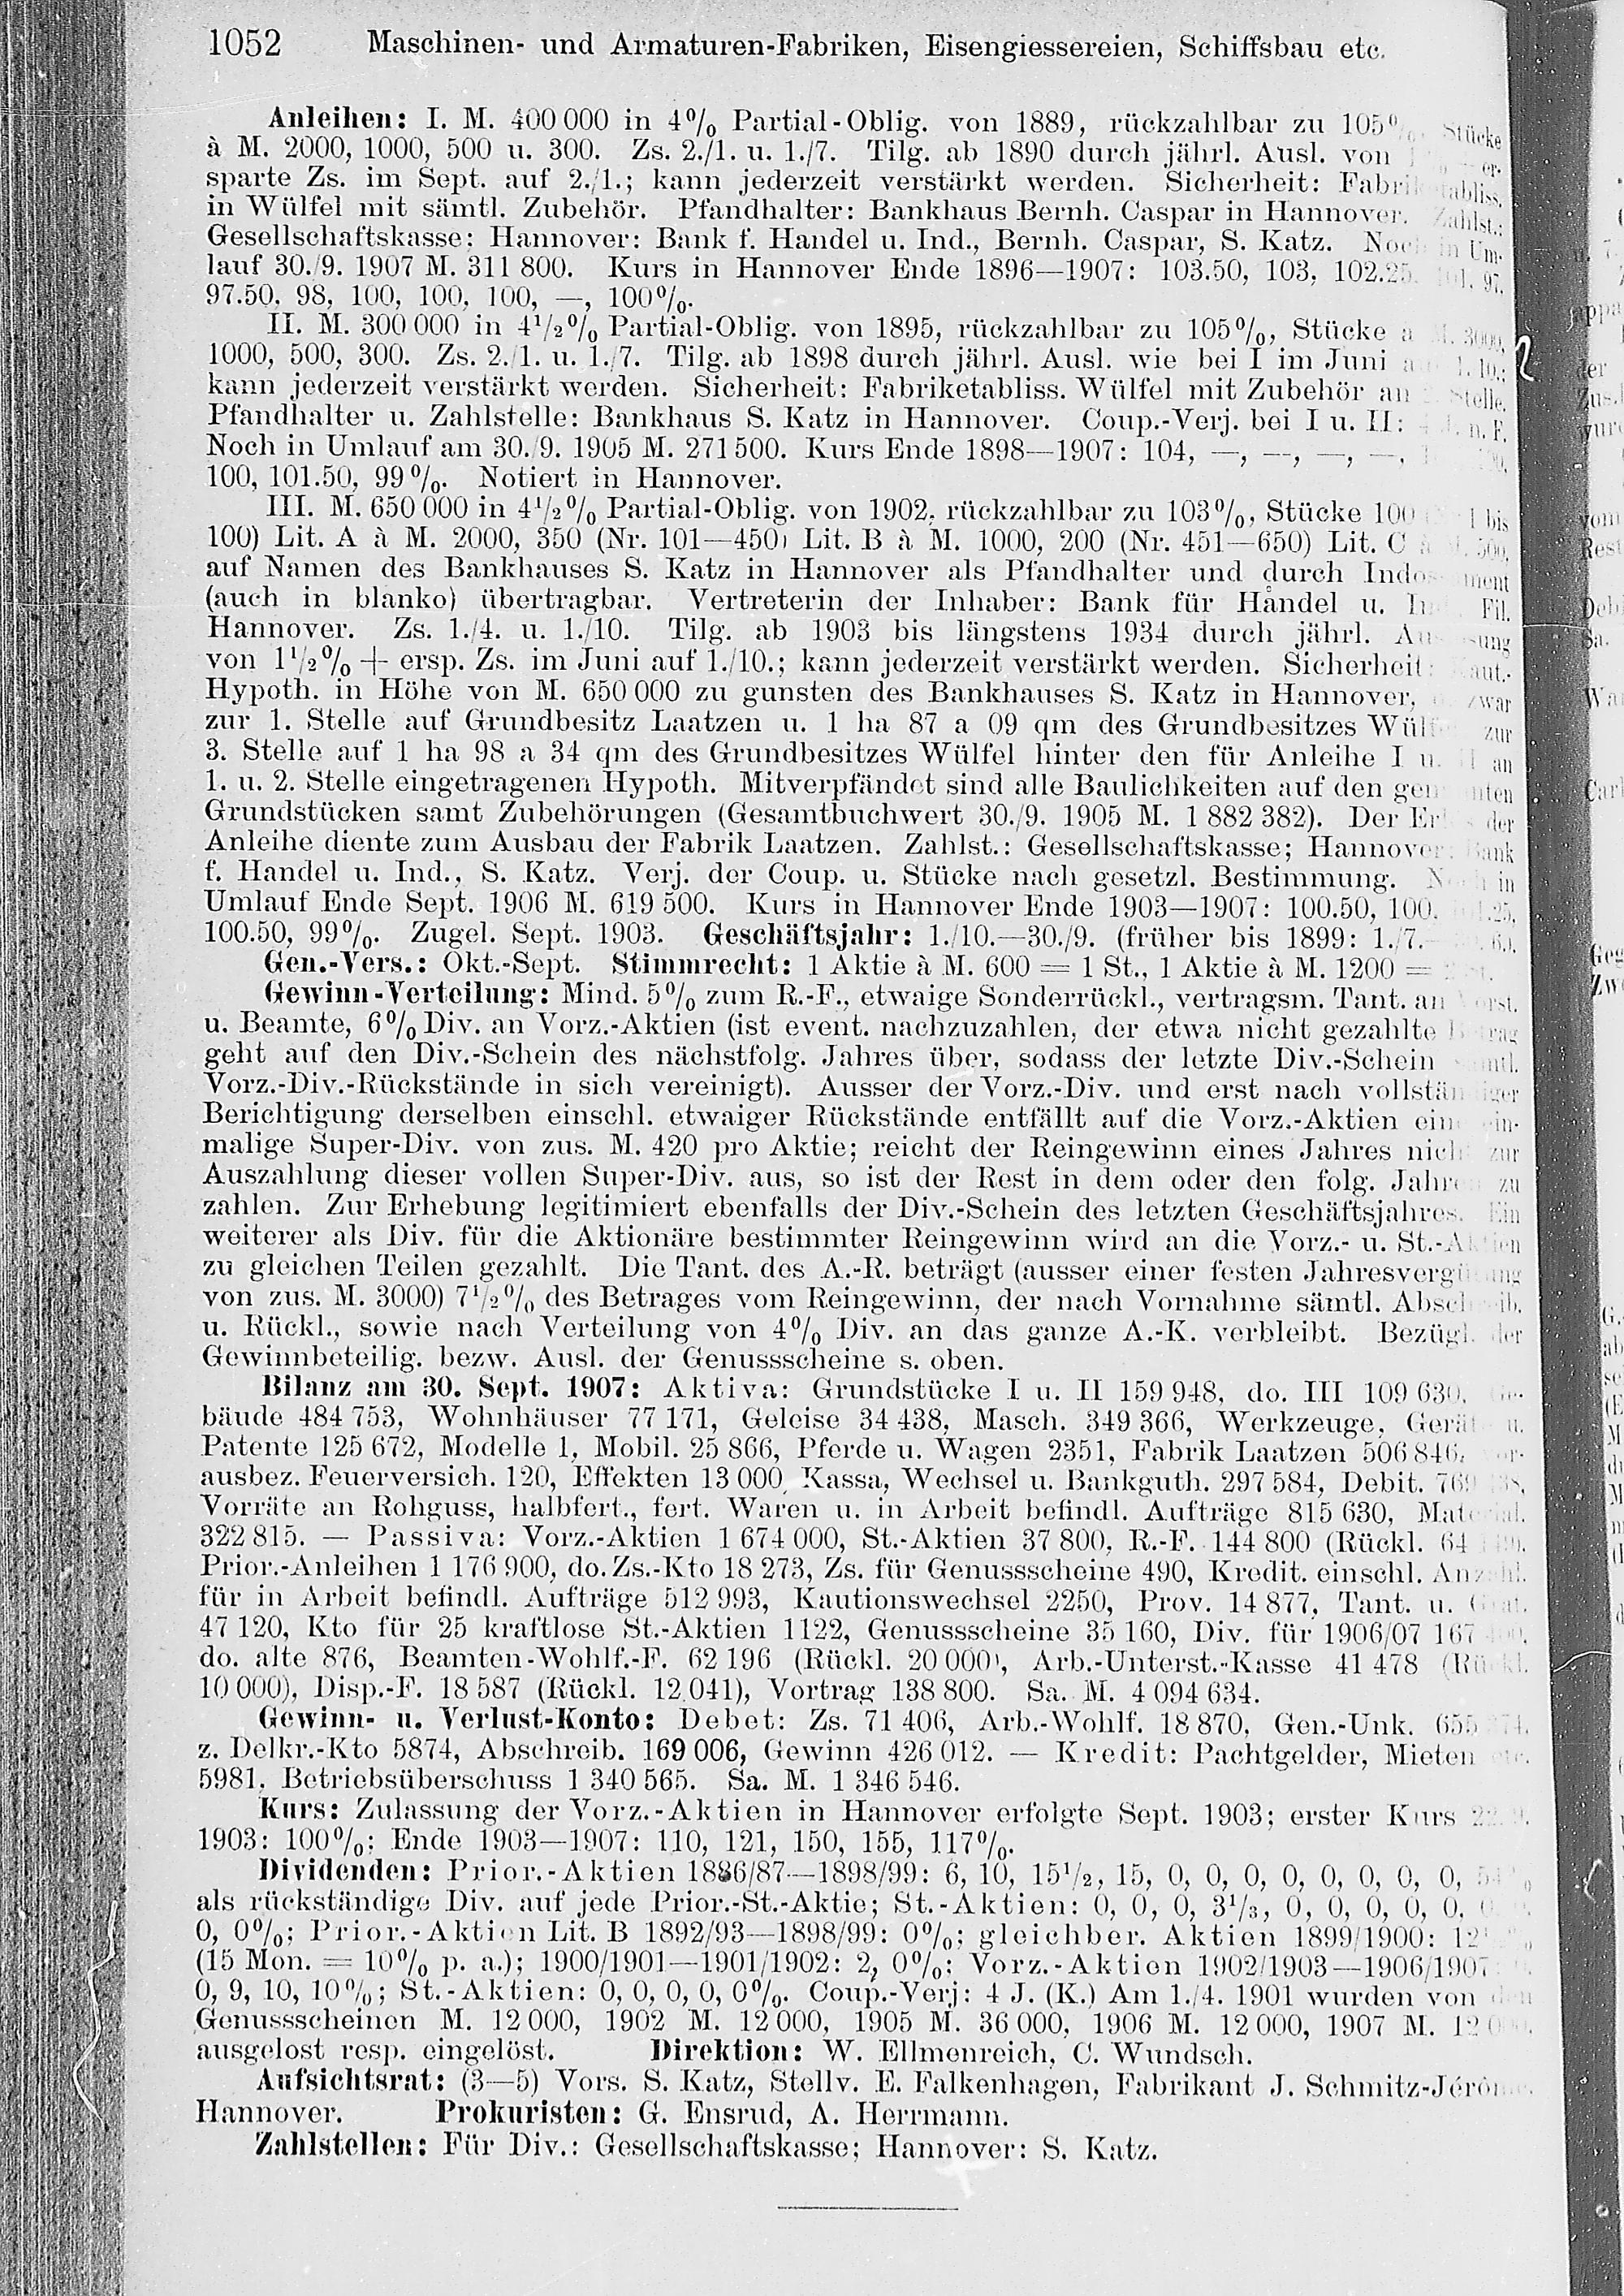 1052 Maschinen- und Armaturen-Fabriken, Eisengiessereien, Schiffsbau etc.
Anleihen: I. M. 400 000 in 4% Partial-Oblig. von 1889, rückzahlbar zu 105%, Stücke
à M. 2000, 1000, 500 u. 300. Zs. 2./1. u. 1./7. Tilg. ab 1890 durch jährl. Ausl. von er-
sparte Zs. im Sept. auf 2./1.; kann jederzeit verstärkt werden. Sicherheit: Fabriketabliss.
in Wülfel mit sämtl. Zubehör. Pfandhalter: Bankhaus Bernh. Caspar in Hannover. Zahlst.:
Gesellschaftskasse; Hannover: Bank f. Handel u. Ind., Bernh. Caspar, S. Katz. Noch in Um-
lauf 30./9. 1907 M. 311 800. Kurs in Hannover Ende 1896—1907: 103.50, 103, 102.25, 101, 97,
97.50, 98, 100, 100, 100, —, 100%.
II. M. 300 000 in 4½% Partial-Oblig. von 1895, rückzahlbar zu 105%, Stücke à M. 3000,
1000, 500, 300. Zs. 2./1. u. 1./7. Tilg. ab 1898 durch jährl. Ausl. wie bei I im Juni auf 1./10.;
kann jederzeit verstärkt werden. Sicherheit: Fabriketabliss. Wülfel mit Zubehör an Stelle.
Pfandhalter u. Zahlstelle: Bankhaus S. Katz in Hannover. Coup.-Verj. bei I u. II: 4 J. n. F.
Noch in Umlauf am 30./9. 1905 M. 271 500. Kurs Ende 1898—1907: 104, —, —, —, —,
100, 101.50, 99%. Notiert in Hannover.
III. M. 650 000 in 4½% Partial-Oblig. von 1902, rückzahlbar zu 103%, Stücke 100 1 bis
100) Lit. A à M. 2000, 350 (Nr. 101—450) Lit. B à M. 1000, 200 (Nr. 451—650) Lit. C à M. 500,
auf Namen des Bankhauses S. Katz in Hannover als Pfandhalter und durch Indossament
(auch in blanko) übertragbar. Vertreterin der Inhaber: Bank für Handel u. Ind. Fil.
Hannover. Zs. 1./4. u. 1./10. Tilg. ab 1903 bis längstens 1934 durch jährl. Auslosung
von 1½% + ersp. Zs. im Juni auf 1./10.; kann jederzeit verstärkt werden. Sicherheit: Kaut.-
Hypoth. in Höhe von M. 650 000 zu gunsten des Bankhauses S. Katz in Hannover, u. zwar
zur 1. Stelle auf Grundbesitz Laatzen u. 1 ha 87 a 09 qm des Grundbesitzes Wülfel zur
3. Stelle auf 1 ha 98 a 34 qm des Grundbesitzes Wülfel hinter den für Anleihe I u. II an
1. u. 2. Stelle eingetragenen Hypoth. Mitverpfändet sind alle Baulichkeiten auf den genannten
Grundstücken samt Zubehörungen (Gesamtbuchwert 30./9. 1905 M. 1 882 382). Der Erlös der
Anleihe diente zum Ausbau der Fabrik Laatzen. Zahlst.: Gesellschaftskasse; Hannover: Bank
f. Handel u. Ind., S. Katz. Verj. der Coup. u. Stücke nach gesetzl. Bestimmung. Noch in
Umlauf Ende Sept. 1906 M. 619 500. Kurs in Hannover Ende 1903—1907: 100.50, 100, 101.25,
100.50, 99%. Zugel. Sept. 1903. Geschäftsjahr: 1./10.—30./9. (früher bis 1899: 1./7.—
Gen.-Vers.: Okt.-Sept. Stimmrecht: 1 Aktie à M. 600 = 1 St., 1 Aktie à M. 1200 =
Gewinn-Verteilung: Mind. 5% zum R.-F., etwaige Sonderrückl., vertragsm. Tant. an Vorst.
u. Beamte, 6% Div. an Vorz.-Aktien (ist event. nachzuzahlen, der etwa nicht gezahlte Betrag
geht auf den Div.-Schein des nächstfolg. Jahres über, sodass der letzte Div.-Schein sämtl.
Vorz.-Div.-Rückstände in sich vereinigt). Ausser der Vorz.-Div. und erst nach vollständiger
Berichtigung derselben einschl. etwaiger Rückstände entfällt auf die Vorz.-Aktien eine ein-
malige Super-Div. von zus. M. 420 pro Aktie; reicht der Reingewinn eines Jahres nicht zur
Auszahlung dieser vollen Super-Div. aus, so ist der Rest in dem oder den folg. Jahren zu
zahlen. Zur Erhebung legitimiert ebenfalls der Div.-Schein des letzten Geschäftsjahres. Ein
weiterer als Div. für die Aktionäre bestimmter Reingewinn wird an die Vorz.- u. St.-Aktien
zu gleichen Teilen gezahlt. Die Tant. des A.-R. beträgt (ausser einer festen Jahresvergütung
von zus. M. 3000) 7½% des Betrages vom Reingewinn, der nach Vornahme sämtl. Abschreib.
u. Rückl., sowie nach Verteilung von 4% Div. an das ganze A.-K. verbleibt. Bezügl. der
Gewinnbeteilig. bezw. Ausl. der Genussscheine s. oben.
Bilanz am 30. Sept. 1907: Aktiva: Grundstücke I u. II 159 948, do. III 109 630, Ge-
bäude 484 753, Wohnhäuser 77 171, Geleise 34 438, Masch. 349 366, Werkzeuge, Geräte u.
Patente 125 672, Modelle 1, Mobil. 25 866, Pferde u. Wagen 2351, Fabrik Laatzen 506 846, vor-
ausbez. Feuerversich. 120, Effekten 13 000, Kassa, Wechsel u. Bankguth. 297 584, Debit.
Vorräte an Rohguss, halbfert., fert. Waren u. in Arbeit befindl. Aufträge 815 630, Material.
322 815. — Passiva: Vorz.-Aktien 1 674 000, St.-Aktien 37 800, R.-F. 144 800 (Rückl.
Prior.-Anleihen 1 176 900, do. Zs.-Kto 18 273, Zs. für Genussscheine 490, Kredit. einschl. Anzahl.
für in Arbeit befindl. Aufträge 512 993, Kautionswechsel 2250, Prov. 14 877, Tant. u. Grat.
47 120, Kto für 25 kraftlose St.-Aktien 1122, Genussscheine 35 160, Div. für 1906/07
do. alte 876, Beamten-Wohlf.-F. 62 196 (Rückl. 20 000), Arb.-Unterst.-Kasse 41 478 (Rückl.
10 000), Disp.-F. 18 587 (Rückl. 12 041), Vortrag 138 800. Sa. M. 4 094 634.
Gewinn- u. Verlust-Konto: Debet: Zs. 71 406, Arb.-Wohlf. 18 870, Gen.-Unk.
z. Delkr.-Kto 5874, Abschreib. 169 006, Gewinn 426 012. — Kredit: Pachtgelder, Mieten etc.
5981, Betriebsüberschuss 1 340 565. Sa. M. 1 346 546.
Kurs: Zulassung der Vorz.-Aktien in Hannover erfolgte Sept. 1903; erster Kurs 22./9.
1903: 100%; Ende 1903—1907: 110, 121, 150, 155, 117%.
Dividenden: Prior.-Aktien 1886/87—1898/99: 6, 10, 15½, 15, 0, 0, 0, 0, 0, 0, 0, 0,
als rückständige Div. auf jede Prior.-St.-Aktie; St.-Aktien: 0, 0, 0, 3⅓, 0, 0, 0, 0, 0,
0, 0%; Prior.-Aktien Lit. B 1892/93—1898/99: 0%; gleichber. Aktien 1899/1900:
(15 Mon. = 10% p. a.); 1900/1901—1901/1902: 2, 0%; Vorz.-Aktien 1902/1903—1906/1907:
0, 9, 10, 10%; St.-Aktien: 0, 0, 0, 0, 0%. Coup.-Verj: 4 J. (K.) Am 1./4. 1901 wurden von den
Genussscheinen M. 12 000, 1902 M. 12 000, 1905 M. 36 000, 1906 M. 12 000, 1907 M. 12 000,
ausgelost resp. eingelöst. Direktion: W. Ellmenreich, C. Wundsch.
Aufsichtsrat: (3—5) Vors. S. Katz, Stellv. E. Falkenhagen, Fabrikant J. Schmitz-Jérôme,
Hannover. Prokuristen: G. Ensrud, A. Herrmann.
Zahlstellen: Für Div.: Gesellschaftskasse; Hannover: S. Katz.